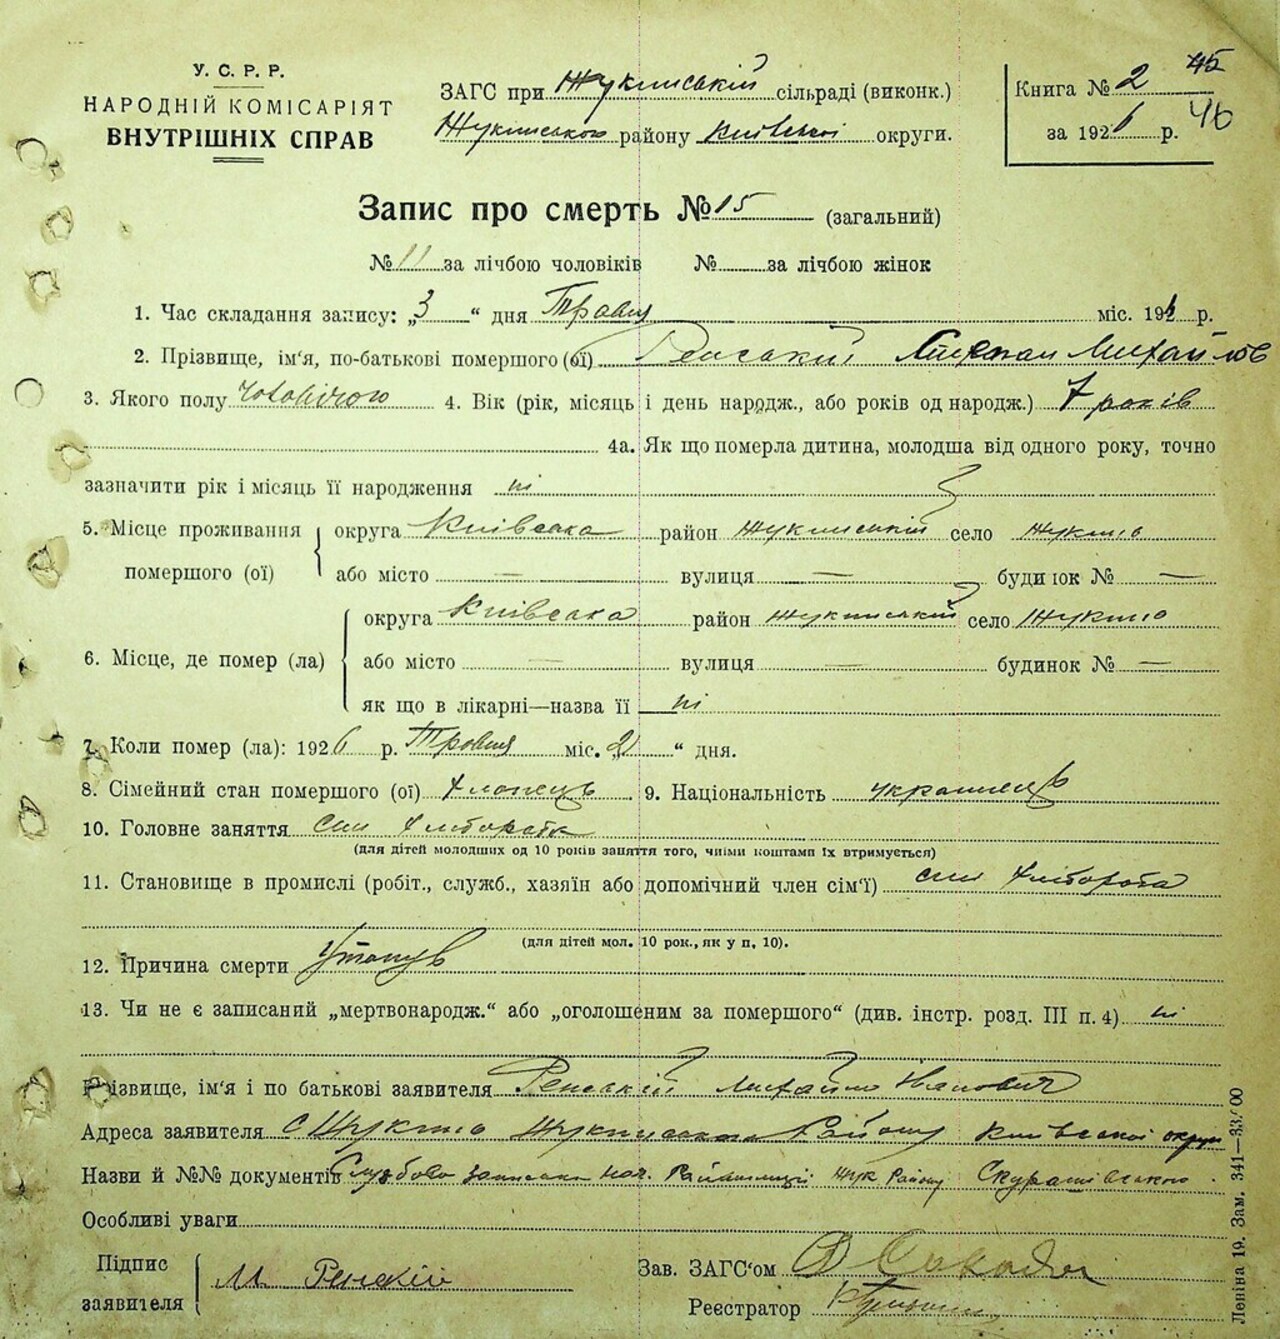 У. С. Р. Р.
НАРОДНІЙ КОМІСАРІЯТ
ВНУТРІШНІХ СПРАВ
ЗАГС при Жукинській сільраді (виконк.)
Жукинського району Київської округи.
Книга № 2 45
за 1926 р. 46
Запис про смерть № 15 (загальний)
№ 11 за лічбою чоловіків № за лічбою жінок
1. Час складання запису: „3“ дня Травня міс. 1926 р.
2. Прізвище, ім'я, по-батькові помершого (ої) Ренський Михайлов
3. Якого полу чоловічого 4. Вік (рік, місяць і день народж., або років од народж.) 7 років
4а. Як що померла дитина, молодша від одного року, точно
зазначити рік і місяць її народження ні
5. Місце проживання помершого (ої) округа Київська район Жукинський село Жукино
або місто — вулиця — будинок № —
6. Місце, де помер (ла) округа Київська район Жукинський село Жукино
або місто — вулиця — будинок № —
як що в лікарні—назва її ні
7. Коли помер (ла): 1926 р. Травня міс. „2“ дня.
8. Сімейний стан помершого (ої) хлопець 9. Національність українець
10. Головне заняття син хлібороба
(для дітей молодших од 10 років заняття того, чиїми коштами їх втримується)
11. Становище в промислі (робіт., служб., хазяїн або допомічний член сім'ї) син хлібороба
(для дітей мол. 10 рок., як у п, 10).
12. Причина смерти Утонув
13. Чи не є записаний „мертвонародж.“ або „оголошеним за помершого“ (див. інстр. розд. III п. 4) ні
Прізвище, ім'я і по батькові заявителя Ренський Михайло Іванович
Адреса заявителя с Жукино Жукинського Району Київської округи
Назви й №№ документів Службова записка нач. Райміліції Жук Району
Особливі уваги
Підпис заявителя М. Ренский
Зав. ЗАГС'ом
Реєстратор
Леніна 19. Зам. 341—33/00